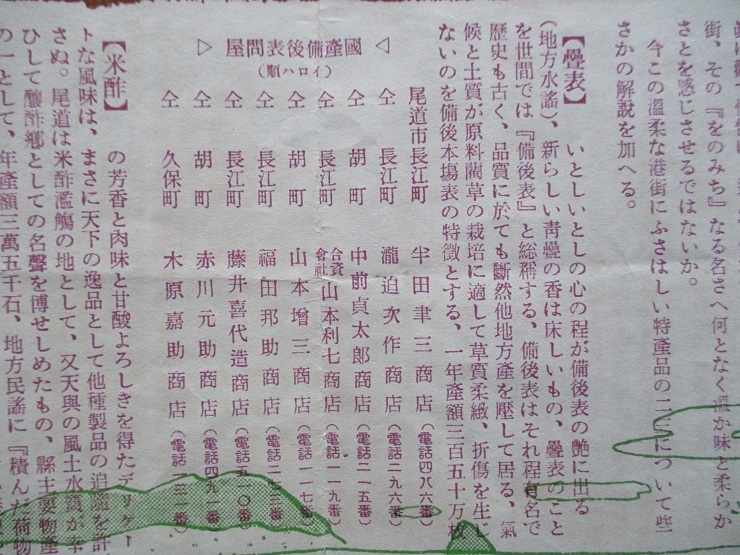 街、その『をのみち』なる名さへ何となく溫か味と柔らか
さとを感じさせるではないか。
今この溫柔な港街にふさはしい特産品の二三について些
さかの解說を加へる。
【疊表】 いとしいとしの心の程が備後表の艷に出る
(地方水謠)、新らしい靑疊の香は床しいもの、疊表のこと
を世間では『備後表』と總稱する、備後表はそれ程有名で
歷史も古く、品質に於ても斷然他地方產を壓して居る、氣
候と土質が原料藺草の栽培に適して草質柔緻、折傷を生じ
ないのを備後本場表の特徵とする、一年產額三百五十万枚
◁ 國產備後表問屋 ▷
(イロハ順)
尾道市長江町 半田聿三商店(電話四八六番)
仝 長江町 瀧迫次作商店(電話二九六番)
仝 胡町 中前貞太郎商店(電話二一五番)
仝 長江町 合資會社山本利七商店(電話一一九番)
仝 胡町 山本增三商店(電話一一七番)
仝 長江町 福田邦助商店(電話二七三番)
仝 長江町 藤井喜代造商店(電話五一〇番)
仝 胡町 赤川元助商店(電話四九一番)
仝 久保町 木原嘉助商店(電話一三一番)
【米酢】 の芳香と肉味と甘酸よろしきを得たデリケー
トな風味は、まさに天下の逸品として他種製品の追隨を許
さぬ。尾道は米酢濫觴の地として、又天與の風土水質が幸
ひして釀酢鄕としての名聲を博せしめたもの、縣主要物產
の一として、年產額三萬五千石、地方民謠に『積んだ荷物